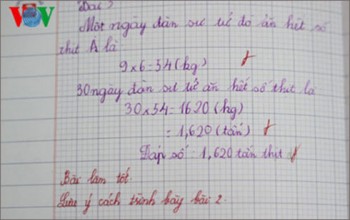 VOV
Bài 2
Một ngày đàn sư tử đó ăn hết số
thịt là
9x6=54(kg)
30 ngày đàn sư tử ăn hết số thịt là
30x54=1620(kg)
=1,620(tấn)
Đáp số: 1,620 tấn thịt
Bài làm tốt.
Lưu ý cách trình bày bài 2.